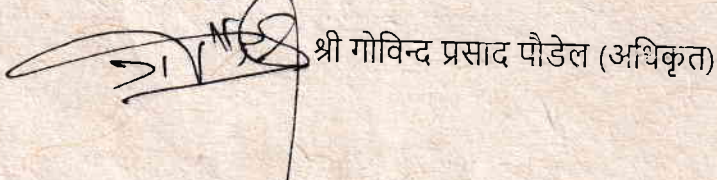 श्री गोविन्द प्रसाद पौडेल (अधिकृत)